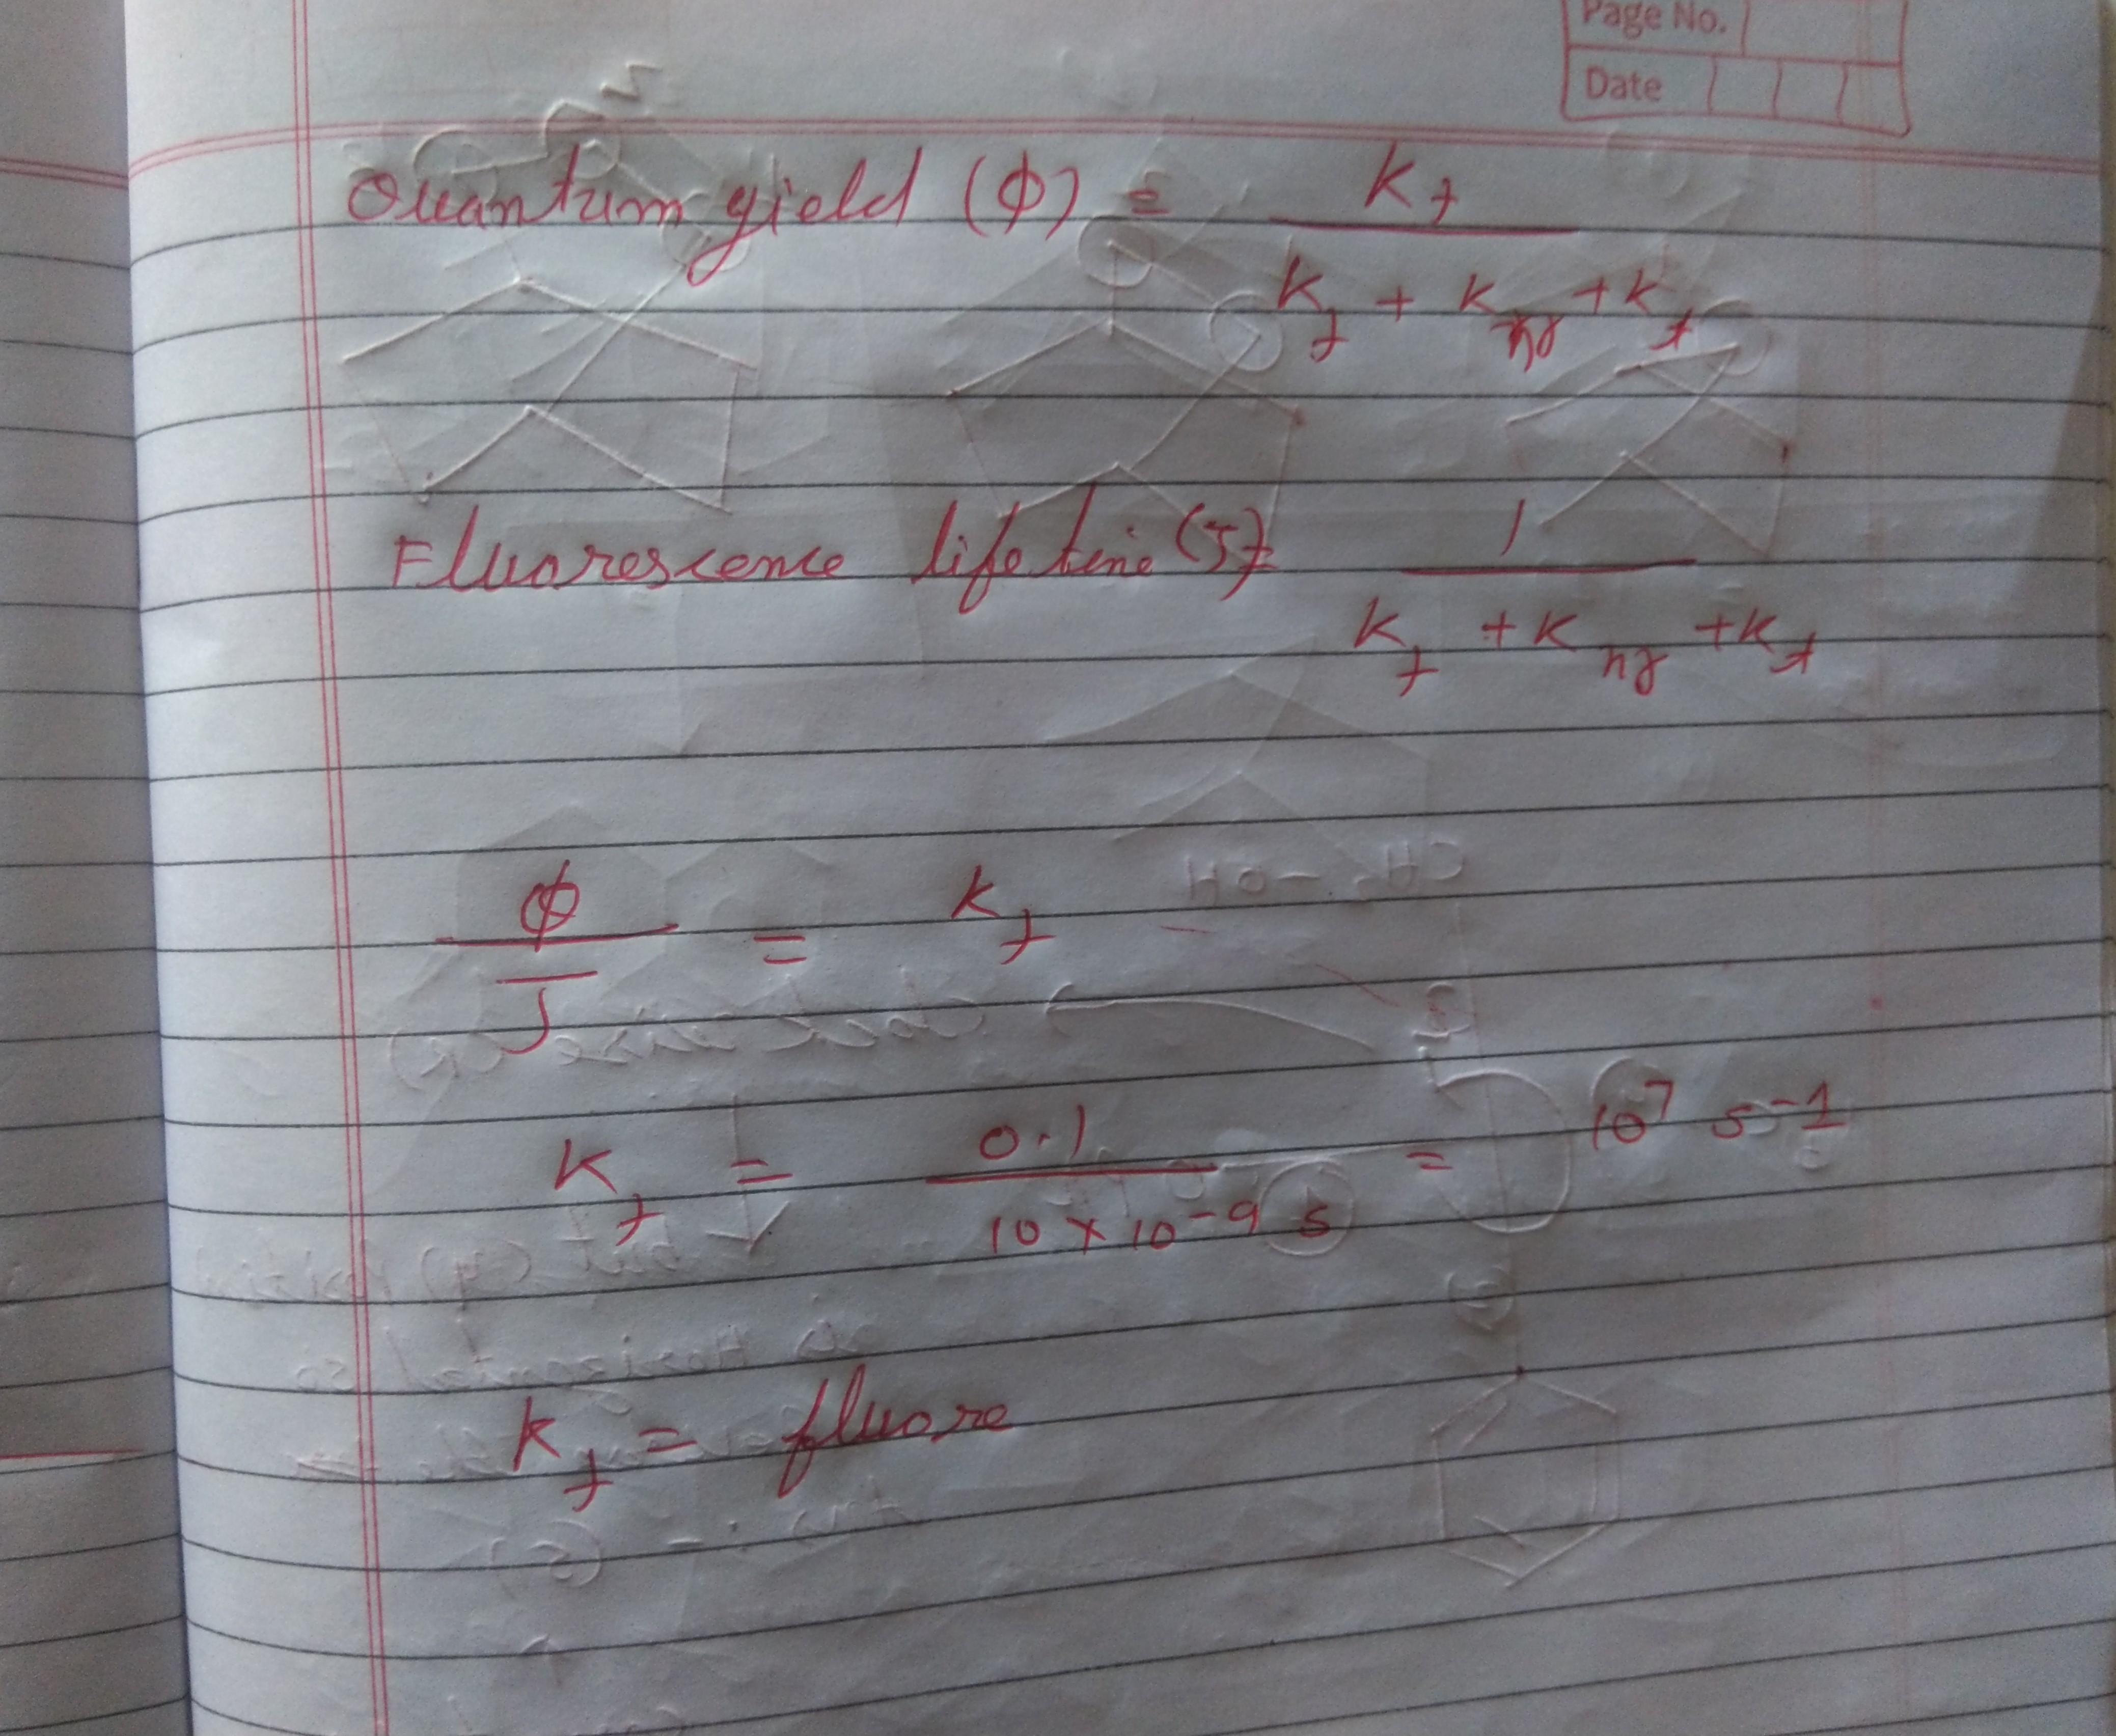 Page No.
Date
Quantum yield (ϕ) = Kf
Kf + Knr + Kt
Fluorescence lifetime (τ) = 1
Kf + Knr + Kt
ϕ
τ = Kf
Kf = 0.1 = 10^7 s^-1
10 × 10^-9 s
Kf = fluore